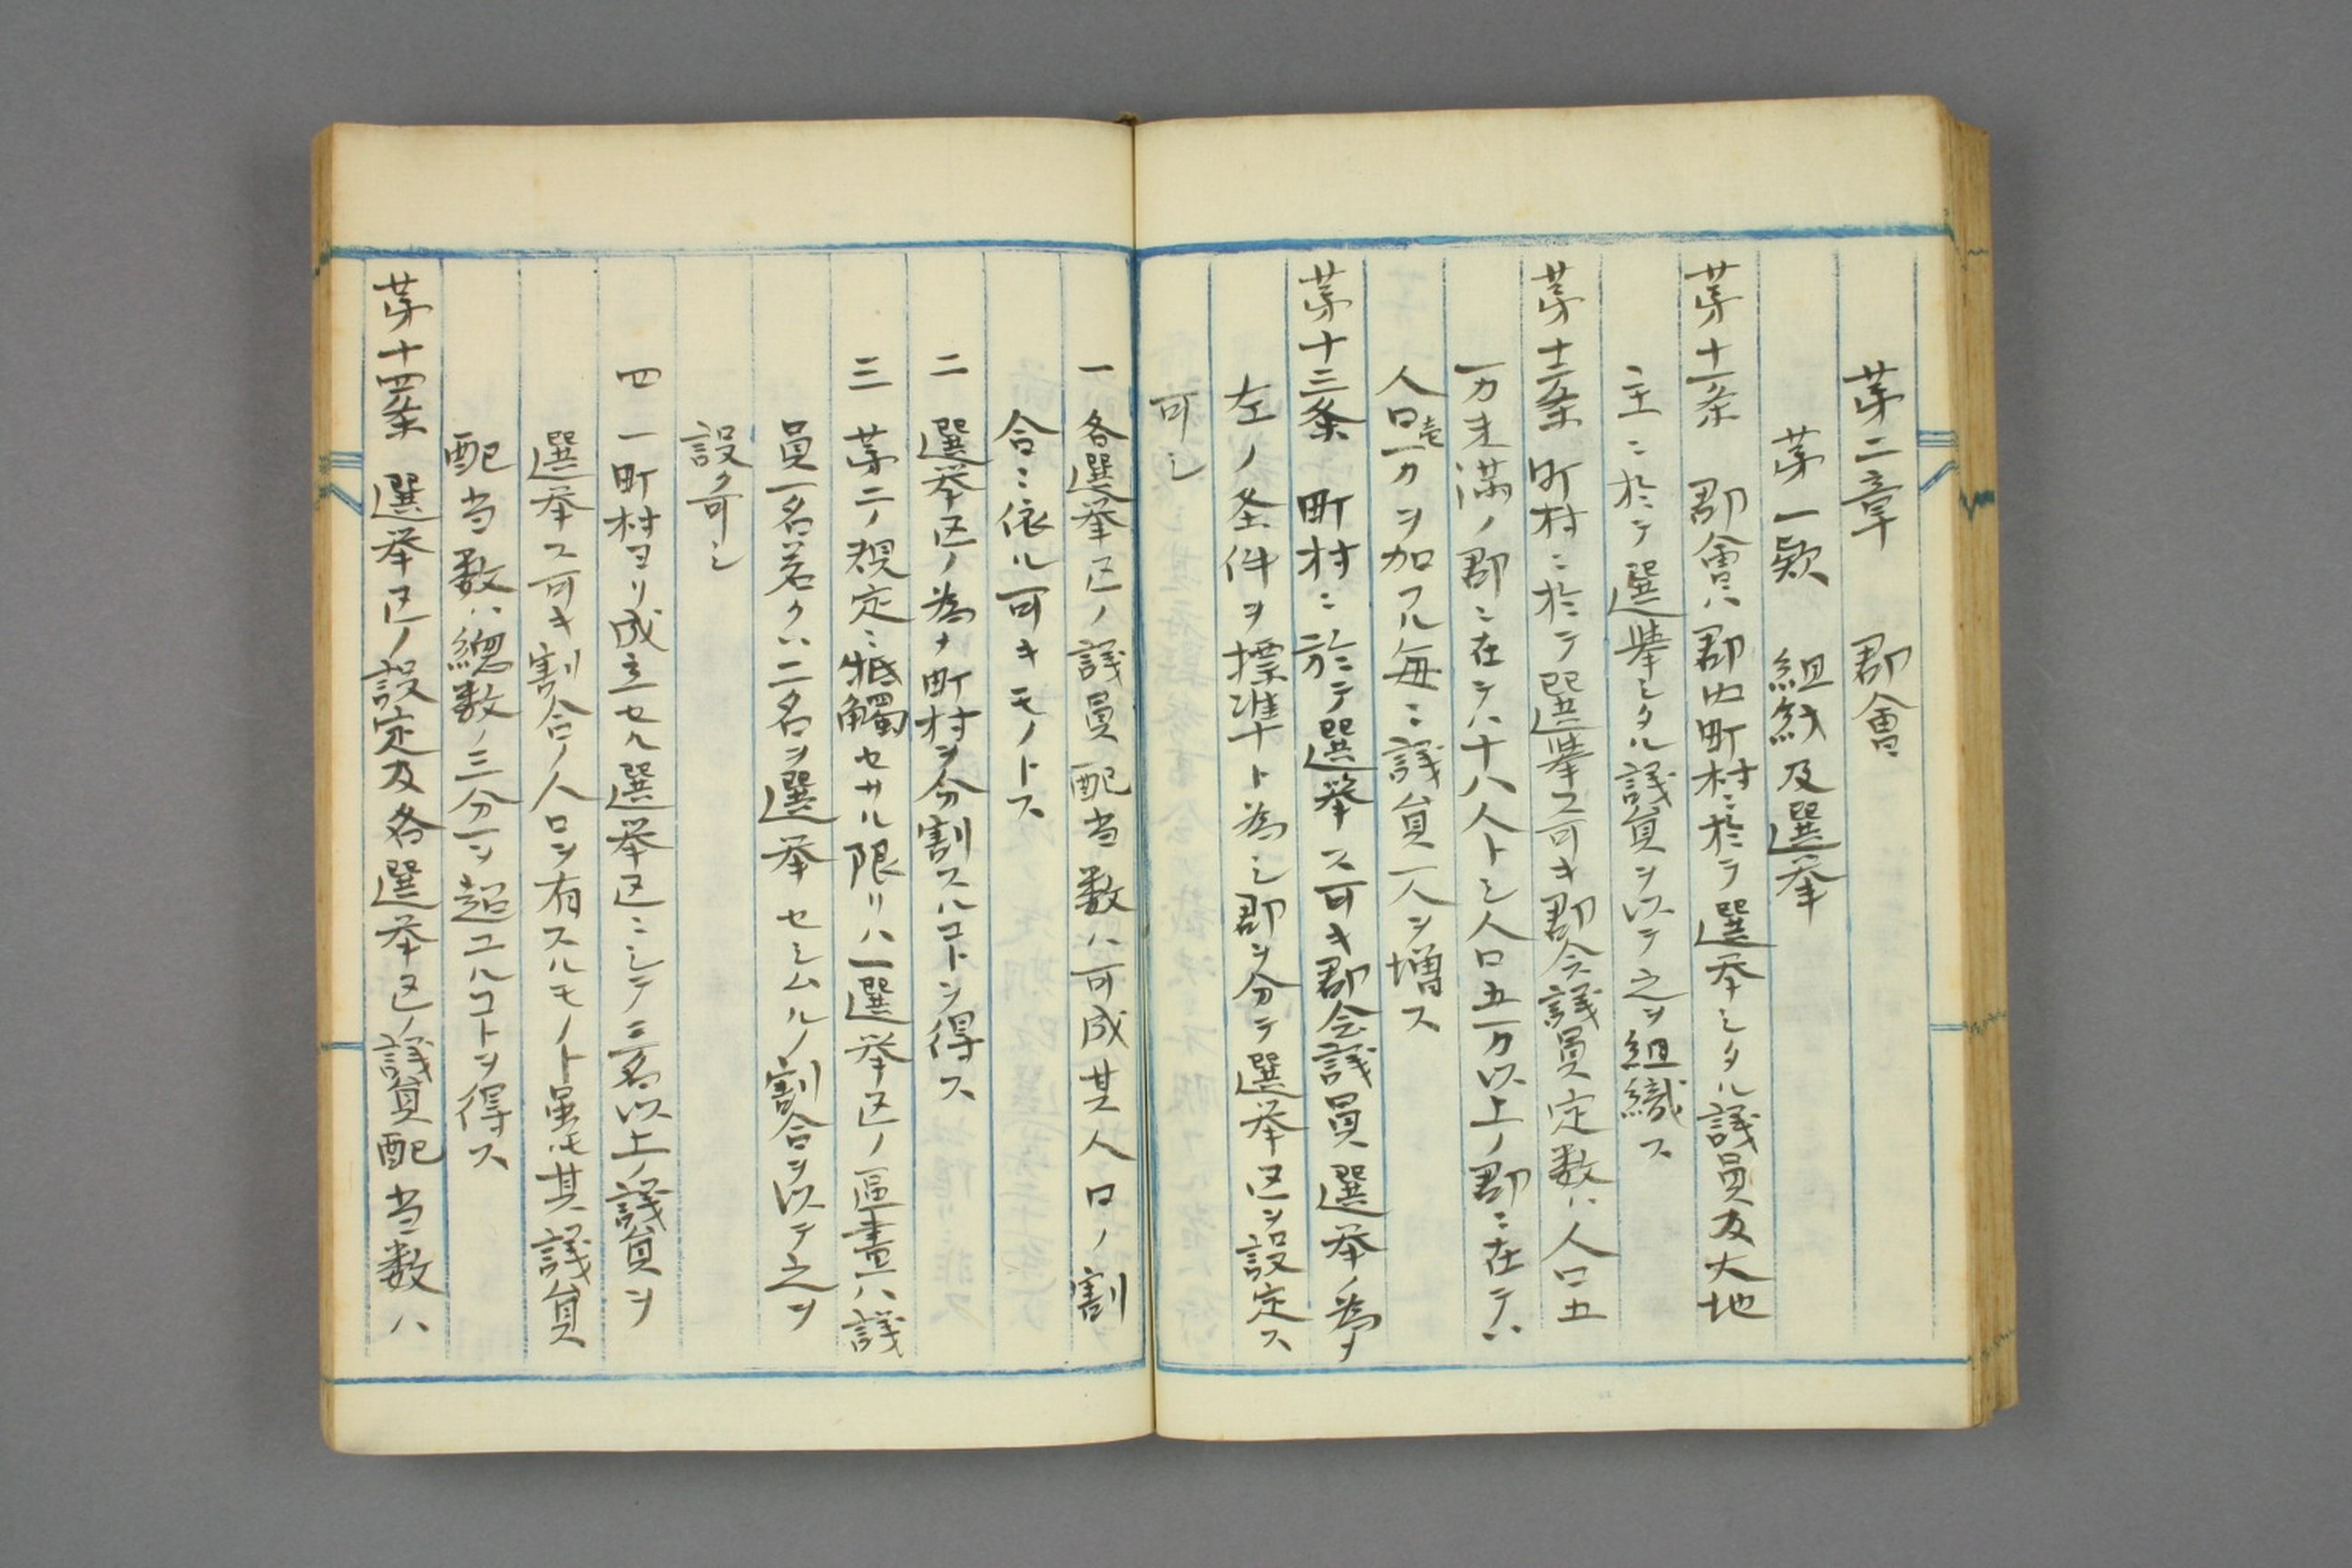 第二章　郡會
第一款　組織及選挙
第十一条　郡會ハ郡内町村ニ於テ選挙シタル議員及大地
主ニ於テ選挙シタル議員ヲ以テ之ヲ組織ス
第十二条　町村ニ於テ選挙ス可キ郡会議員定数ハ人口五
万未満ノ郡ニ在テハ十八人トシ人口五万以上ノ郡ニ在テハ
人口壱万ヲ加フル毎ニ議員一人ヲ増ス
第十三条　町村ニ於テ選挙ス可キ郡会議員選挙ノ為メ
左ノ条件ヲ標準ト為シ郡ヲ分テ選挙区ヲ設定ス
可シ
一　各選挙区ノ議員配当数ハ可成其人口ノ割
合ニ依ル可キモノトス
二　選挙区ノ為メ町村ヲ分割スルコトヲ得ス
三　第二ノ規定ニ牴觸セサル限リハ一選挙区ノ區畫ハ議
員一名若クハ二名ヲ選挙セシムルノ割合ヲ以テ之ヲ
設ク可シ
四　一町村ヨリ成立セル選挙区ニシテ三名以上ノ議員ヲ
選挙ス可キ割合ノ人口ヲ有スルモノト虽モ其議員
配当数ハ総数ノ三分一ヲ超ユルコトヲ得ス
第十四条　選挙区ノ設定及各選挙区ノ議員配当数ハ